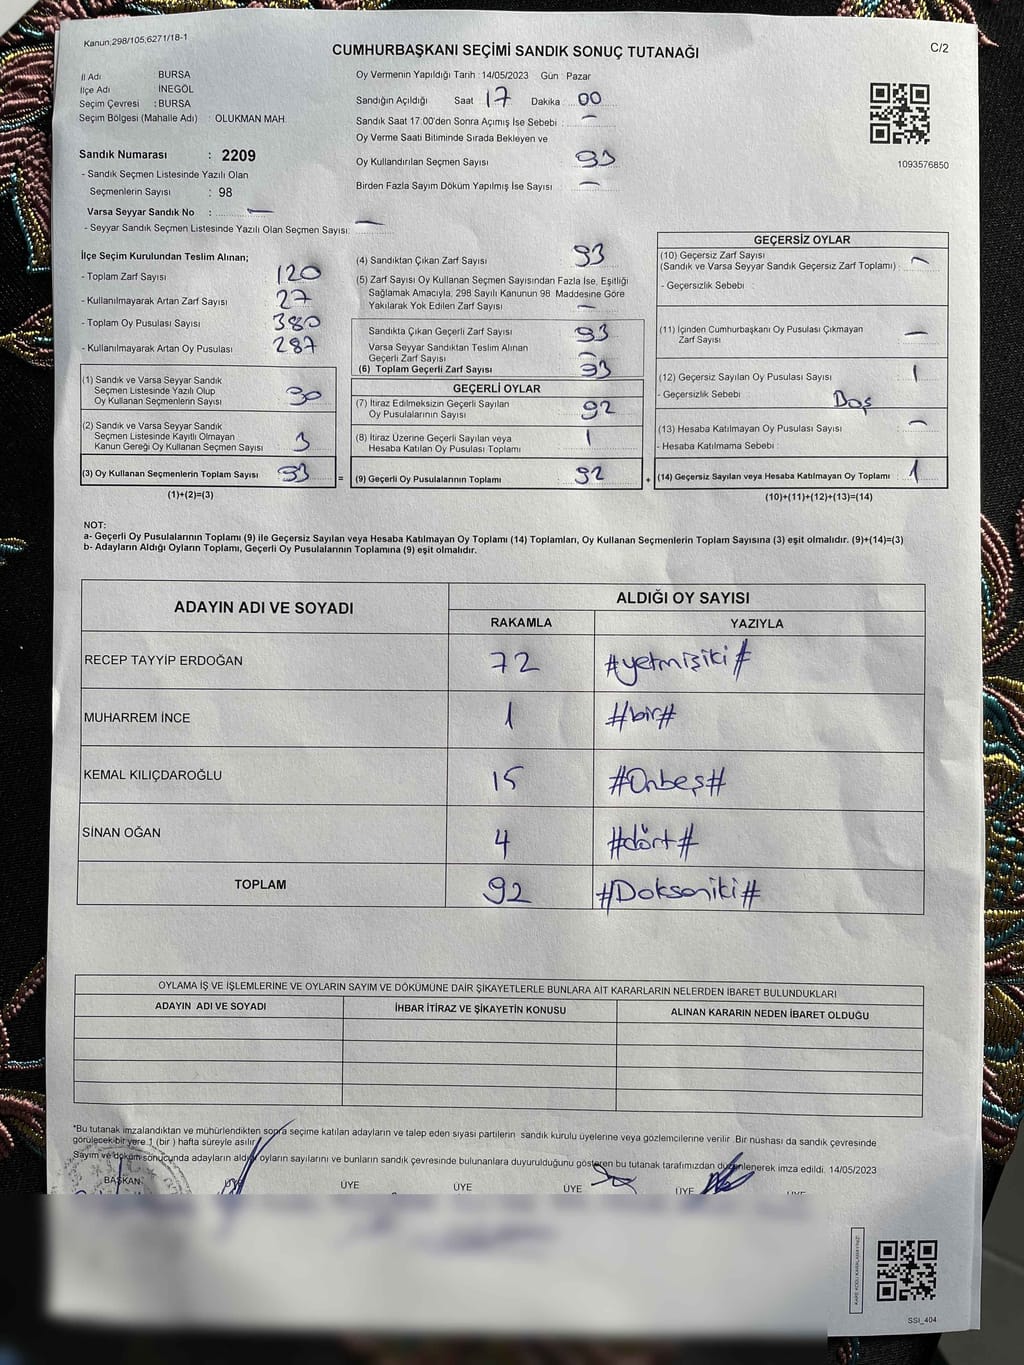 Kanun.298/105,6271/18-1
CUMHURBAŞKANI SEÇİMİ SANDIK SONUÇ TUTANAĞI
C/2
İl Adı : BURSA
İlçe Adı : İNEGÖL
Seçim Çevresi : BURSA
Seçim Bölgesi (Mahalle Adı) : OLUKMAN MAH.
Sandık Numarası : 2209
- Sandık Seçmen Listesinde Yazılı Olan
Seçmenlerin Sayısı : 98
Varsa Seyyar Sandık No : —
- Seyyar Sandık Seçmen Listesinde Yazılı Olan Seçmen Sayısı: —
Oy Vermenin Yapıldığı Tarih : 14/05/2023 Gün : Pazar
Sandığın Açıldığı Saat 17 Dakika : 00
Sandık Saat 17:00'den Sonra Açımış İse Sebebi : —
Oy Verme Saati Bitiminde Sırada Bekleyen ve
Oy Kullandırılan Seçmen Sayısı 93
Birden Fazla Sayım Döküm Yapılmış İse Sayısı —
1093576850
İlçe Seçim Kurulundan Teslim Alınan;
- Toplam Zarf Sayısı 120
- Kullanılmayarak Artan Zarf Sayısı 27
- Toplam Oy Pusulası Sayısı 380
- Kullanılmayarak Artan Oy Pusulası 287
(1) Sandık ve Varsa Seyyar Sandık
Seçmen Listesinde Yazılı Olup
Oy Kullanan Seçmenlerin Sayısı 90
(2) Sandık ve Varsa Seyyar Sandık
Seçmen Listesinde Kayıtlı Olmayan
Kanun Gereği Oy Kullanan Seçmen Sayısı 3
(3) Oy Kullanan Seçmenlerin Toplam Sayısı 93
(1)+(2)=(3)
=
(4) Sandıktan Çıkan Zarf Sayısı 93
(5) Zarf Sayısı Oy Kullanan Seçmen Sayısından Fazla İse, Eşitliği
Sağlamak Amacıyla, 298 Sayılı Kanunun 98 Maddesine Göre
Yakılarak Yok Edilen Zarf Sayısı —
Sandıkta Çıkan Geçerli Zarf Sayısı 93
Varsa Seyyar Sandıktan Teslim Alınan
Geçerli Zarf Sayısı —
(6) Toplam Geçerli Zarf Sayısı 93
GEÇERLİ OYLAR
(7) İtiraz Edilmeksizin Geçerli Sayılan
Oy Pusulalarının Sayısı 92
(8) İtiraz Üzerine Geçerli Sayılan veya
Hesaba Katılan Oy Pusulası Toplamı 1
(9) Geçerli Oy Pusulalarının Toplamı 92
+
GEÇERSİZ OYLAR
(10) Geçersiz Zarf Sayısı
(Sandık ve Varsa Seyyar Sandık Geçersiz Zarf Toplamı) : —
- Geçersizlik Sebebi :
(11) İçinden Cumhurbaşkanı Oy Pusulası Çıkmayan
Zarf Sayısı —
(12) Geçersiz Sayılan Oy Pusulası Sayısı 1
- Geçersizlik Sebebi Boş
(13) Hesaba Katılmayan Oy Pusulası Sayısı —
- Hesaba Katılmama Sebebi :
(14) Geçersiz Sayılan veya Hesaba Katılmayan Oy Toplamı 1
(10)+(11)+(12)+(13)=(14)
NOT:
a- Geçerli Oy Pusulalarının Toplamı (9) ile Geçersiz Sayılan veya Hesaba Katılmayan Oy Toplamı (14) Toplamları, Oy Kullanan Seçmenlerin Toplam Sayısına (3) eşit olmalıdır. (9)+(14)=(3)
b- Adayların Aldığı Oyların Toplamı, Geçerli Oy Pusulalarının Toplamına (9) eşit olmalıdır.
ADAYIN ADI VE SOYADI
ALDIĞI OY SAYISI
RAKAMLA YAZIYLA
RECEP TAYYİP ERDOĞAN 72 #yetmişiki#
MUHARREM İNCE 1 #bir#
KEMAL KILIÇDAROĞLU 15 #Onbeş#
SİNAN OĞAN 4 #dört#
TOPLAM 92 #Doksaniki#
OYLAMA İŞ VE İŞLEMLERİNE VE OYLARIN SAYIM VE DÖKÜMÜNE DAİR ŞİKAYETLERLE BUNLARA AİT KARARLARIN NELERDEN İBARET BULUNDUKLARI
ADAYIN ADI VE SOYADI İHBAR İTİRAZ VE ŞİKAYETİN KONUSU ALINAN KARARIN NEDEN İBARET OLDUĞU
*Bu tutanak imzalandıktan ve mühürlendikten sonra seçime katılan adayların ve talep eden siyasi partilerin sandık kurulu üyelerine veya gözlemcilerine verilir. Bir nüshası da sandık çevresinde
görülecek bir yere 1 (bir ) hafta süreyle asılır.
Sayım ve döküm sonucunda adayların aldığı oyların sayılarını ve bunların sandık çevresinde bulunanlara duyurulduğunu gösteren bu tutanak tarafımızdan düzenlenerek imza edildi. 14/05/2023
BAŞKAN ÜYE ÜYE ÜYE ÜYE ÜYE ÜYE
SSI_404